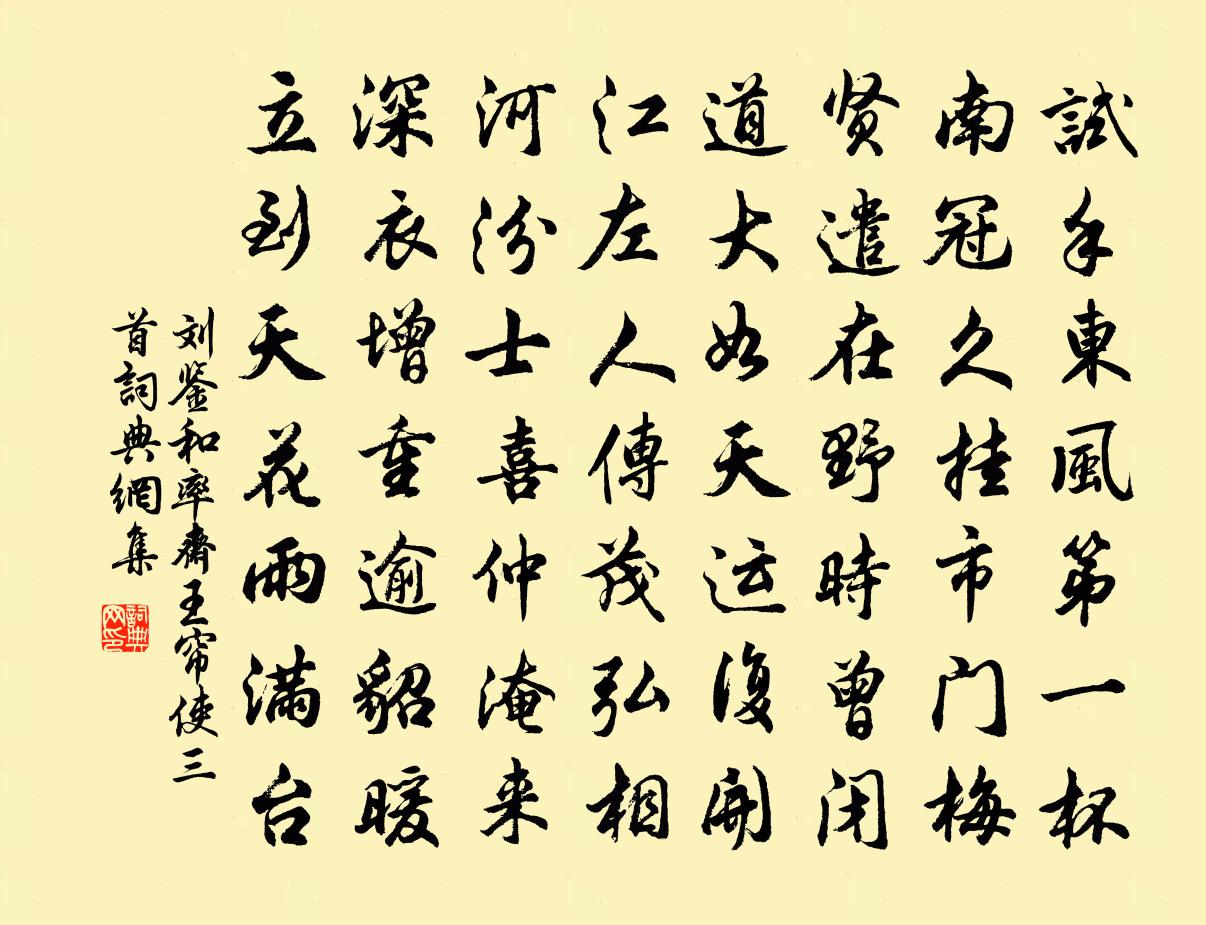 試手東風第一杯
南冠久挂市门梅
贤遣在野時曾闭
道大如天运復開
江左人傳茂弘相
河汾士喜仲淹来
深衣增重逾貂暖
立到天花雨满台
刘鉴和率齋王帘使三
首詞典網集
詞典网印